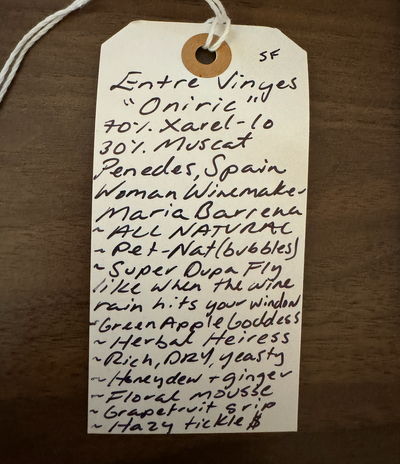 SF
Entre Vinyes
"Oniric"
70% Xarel-lo
30% Muscat
Penedes, Spain
Woman Winemaker
Maria Barrena
~ ALL NATURAL
~ Pet-Nat (bubbles)
~ Super Dupa Fly
like when the wine
rain hits your window
~ Green Apple Goddess
~ Herbal Heiress
~ Rich, DRY, yeasty
~ Honeydew + ginger
~ Floral mousse
~ Grapefruit grip
~ Hazy tickle $